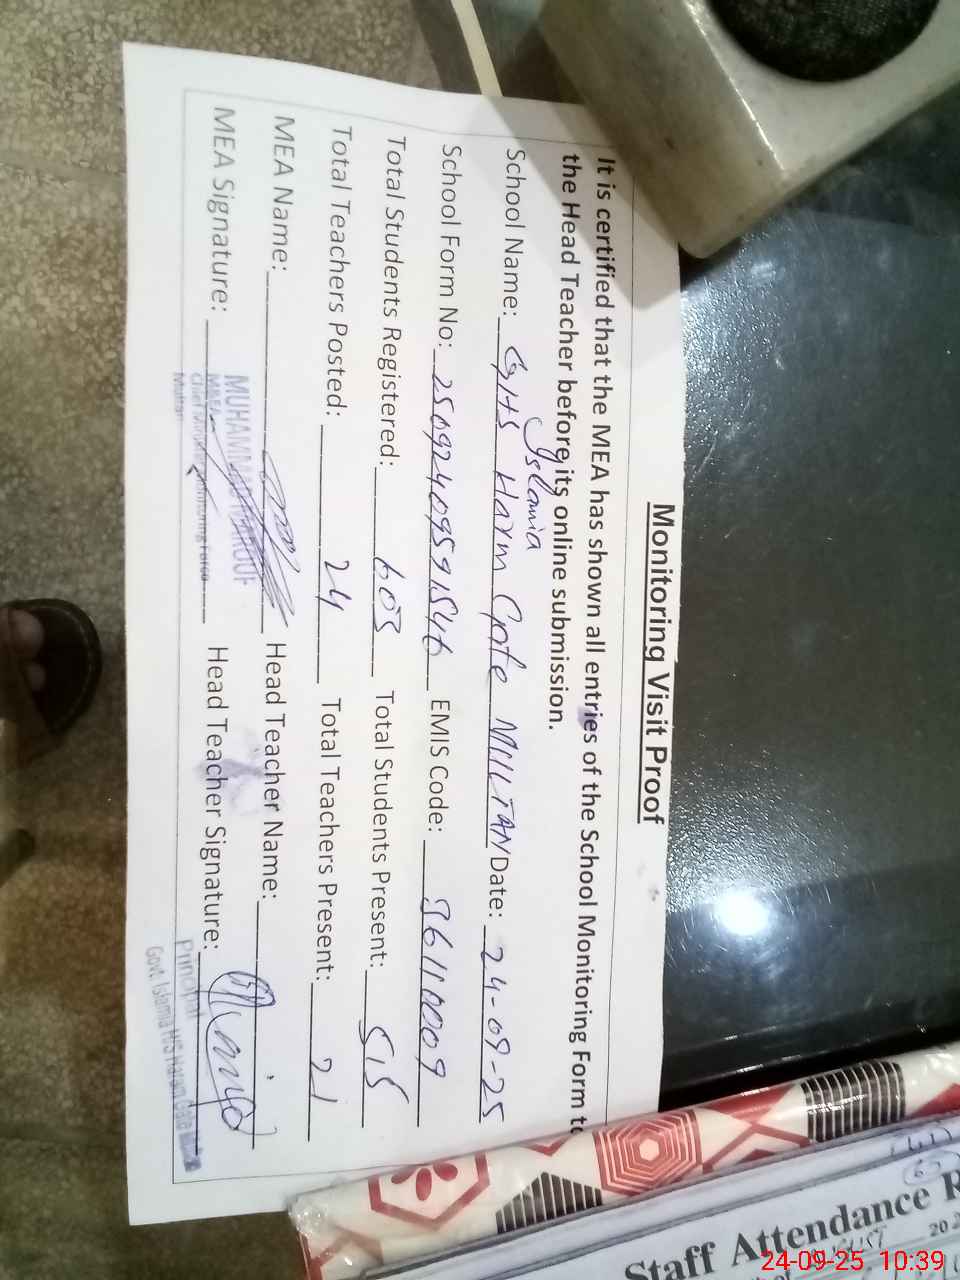 Monitoring Visit Proof
It is certified that the MEA has shown all entries of the School Monitoring Form to
the Head Teacher before its online submission.
Islamia
School Name: GHS Haram Gate MULTAN Date: 24-09-25
School Form No: 25092409591546 EMIS Code: 36110009
Total Students Registered: 603 Total Students Present: 515
Total Teachers Posted: 24 Total Teachers Present: 21
MEA Name: Head Teacher Name:
MEA Signature: Head Teacher Signature:
MUHAMMAD MAROOF
Chief Minister Monitoring Force
Multan
Principal
Govt. Islamia H/S Haram Gate
Staff Attendance R
24-09-25 10:39